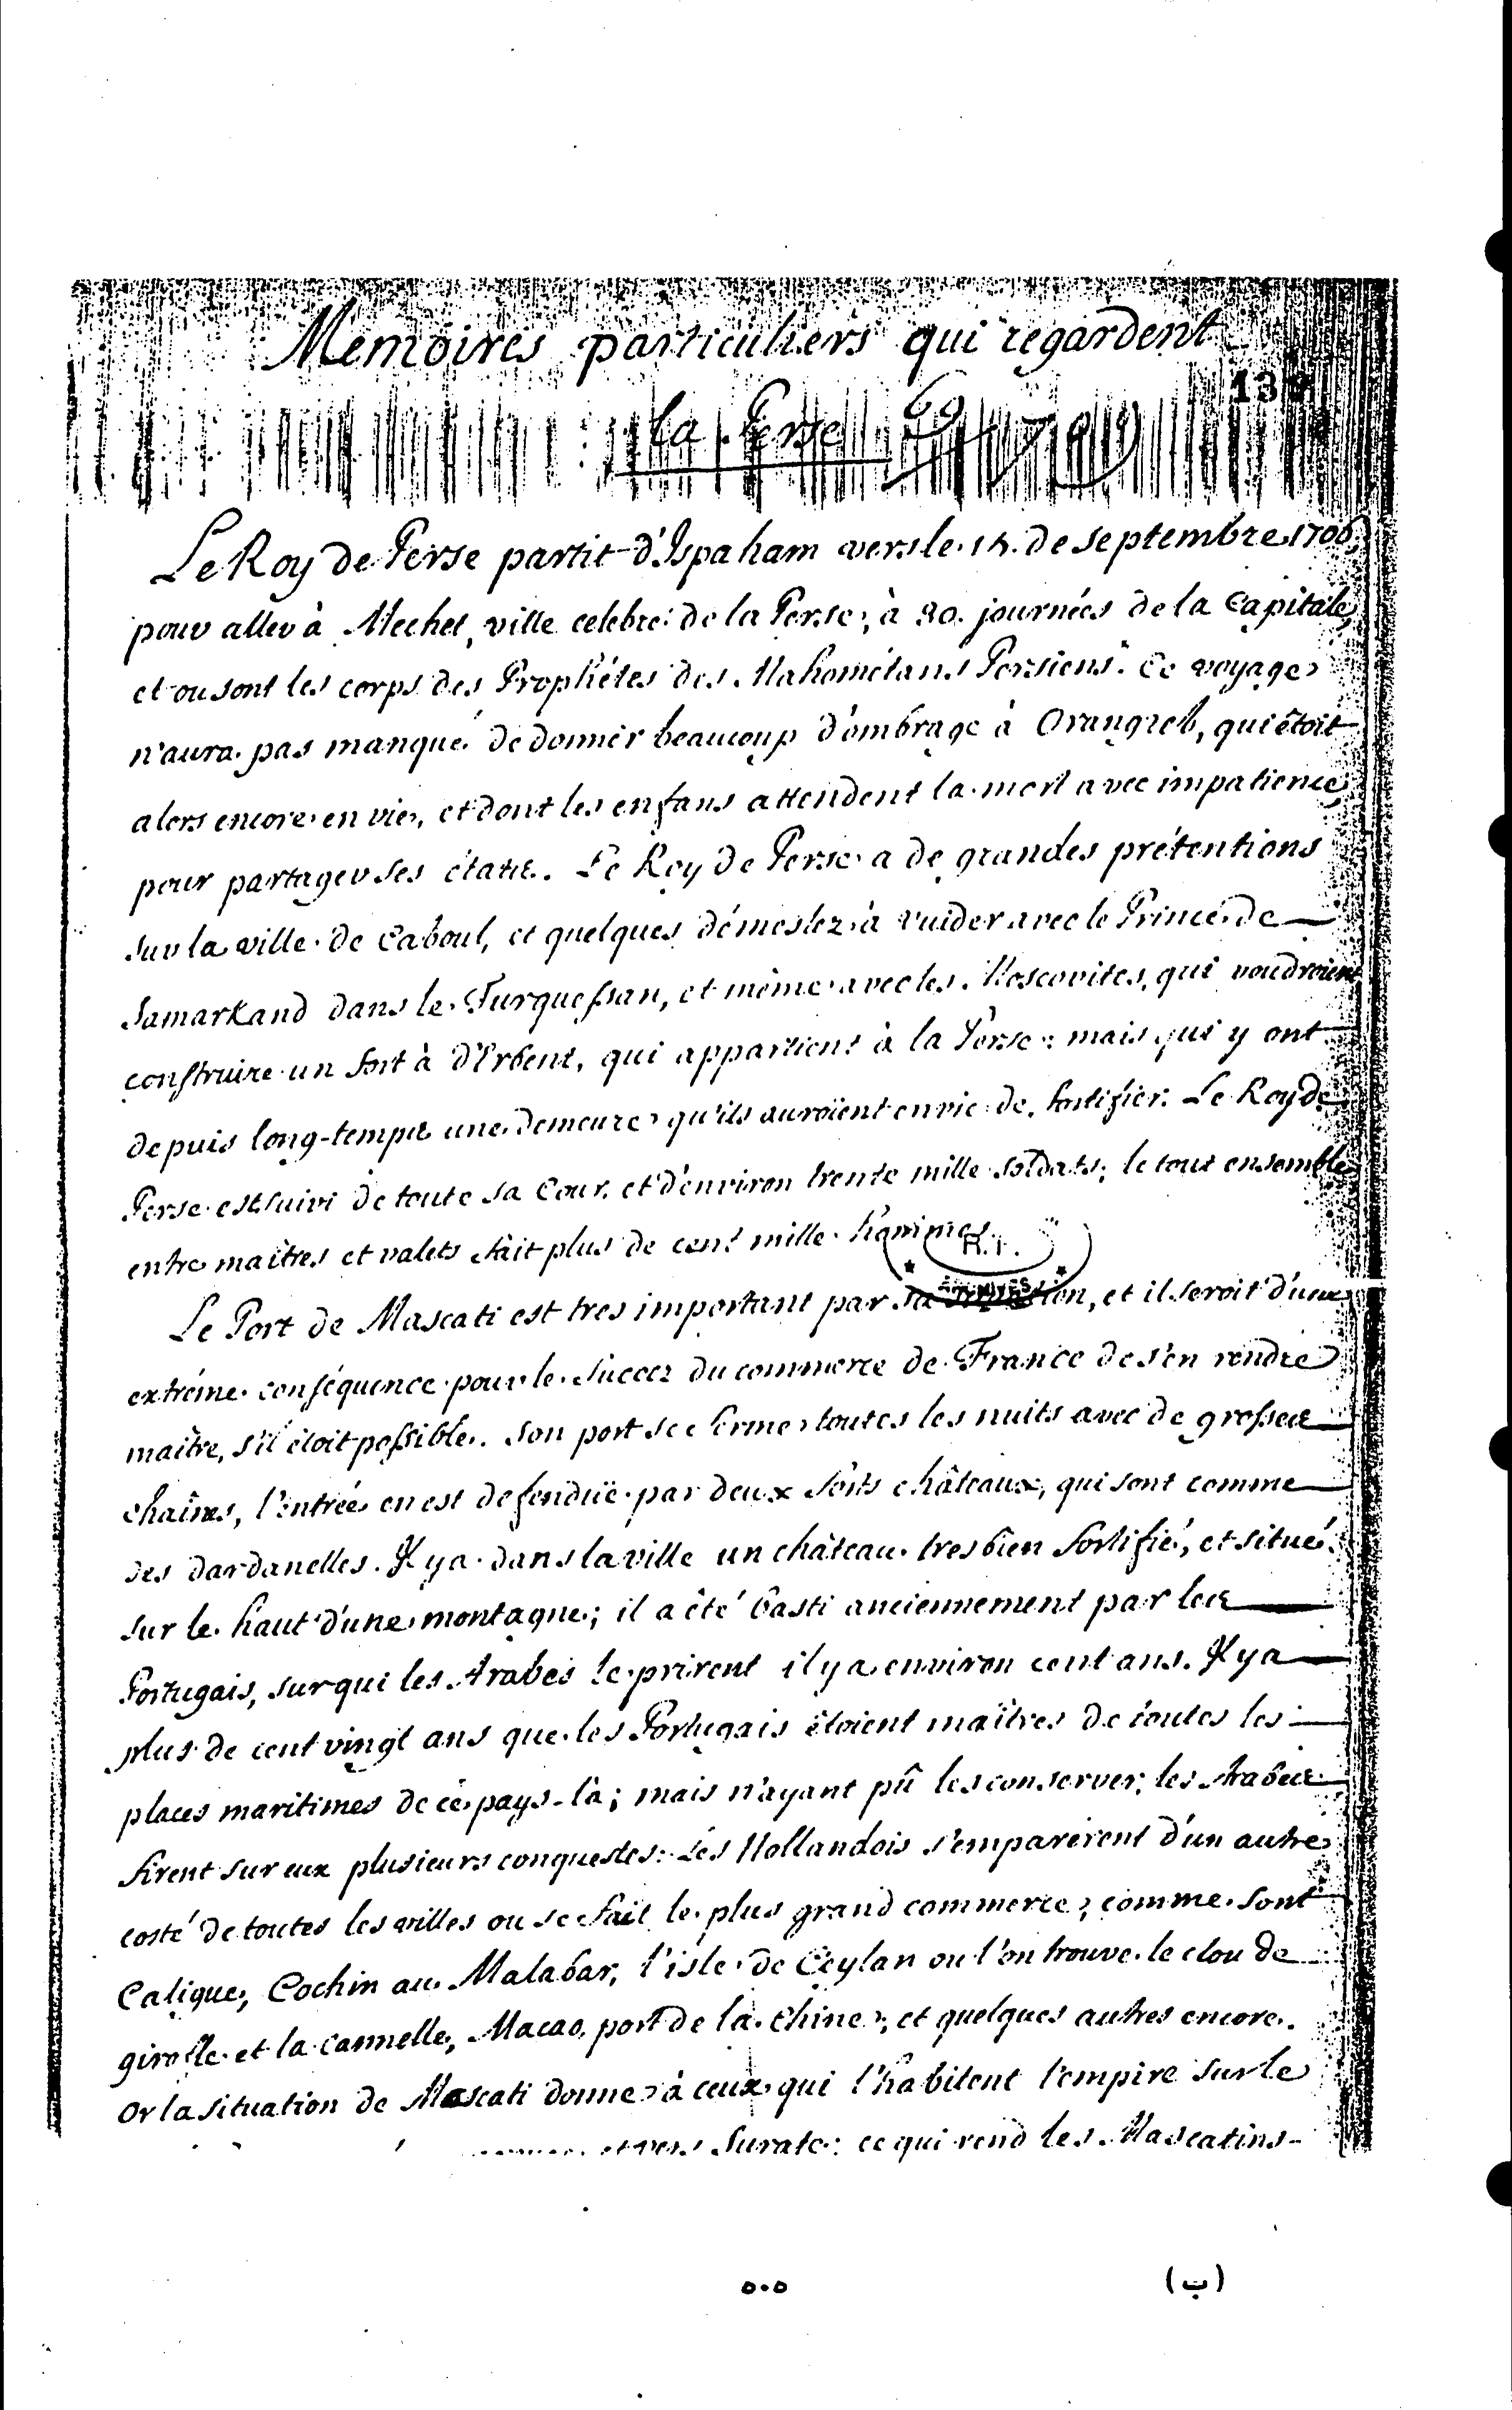 Memoires particuliers qui regardent
la Perse
Le Roy de Perse partit d'Ispaham vers le de septembre 1706,
pour aller à Mechet, ville celebre de la Perse, à 30. journées de la Capitale,
et ou sont les corps des Prophétes des Mahométans Persiens. Ce voyage
n'aura pas manqué de donner beaucoup d'ombrage à Orangzeb, qui êtoit
alors encore en vie, et dont les enfans attendent la mort avec impatience
pour partager ses états. Le Roy de Perse a de grandes prétentions
sur la ville de Caboul, et quelques démeslez à vuider avec le Prince de
Samarkand dans le Turquestan, et même avec les Moscovites, qui voudroient
construire un fort à d'Erbent, qui appartient à la Perse: mais qui y ont
depuis long-temps une demeure qu'ils auroïent envie de fortifier. Le Roy de
Perse est suivi de toute sa Cour, et d'environ trente mille soldats; le tout ensemble
entre maîtres et valets fait plus de cent mille hommes.
R.F.
ARCHIVES
Le Port de Mascati est tres important par sa situation, et il seroit d'une
extréme conséquence pour le succez du commerce de France de s'en rendre
maître, s'il étoit possible. Son port se ferme toutes les nuits avec de grosses
chaînes, l'entrée en est defenduë par deux forts châteaux, qui sont comme
des dardanelles. Il y a dans la ville un château tres bien fortifié, et situé
sur le haut d'une montagne; il a été basti anciennement par les
Portugais, sur qui les Arabes le prirent il y a environ cent ans. Il y a
plus de cent vingt ans que les Portugais étoient maîtres de toutes les
places maritimes de ce pays-là; mais n'ayant pû les conserver, les Arabes
firent sur eux plusieurs conquestes: Les Hollandois s'emparerent d'un autre
costé de toutes les villes ou se fait le plus grand commerce, comme sont
Calique, Cochin au Malabar, l'isle de Ceylan ou l'on trouve le clou de
girofle et la cannelle, Macao, port de la Chine, et quelques autres encore.
Or la situation de Mascati donne à ceux qui l'habitent l'empire sur le
et vers Surate: ce qui rend les Mascatins-
٥٠٥
(ب)